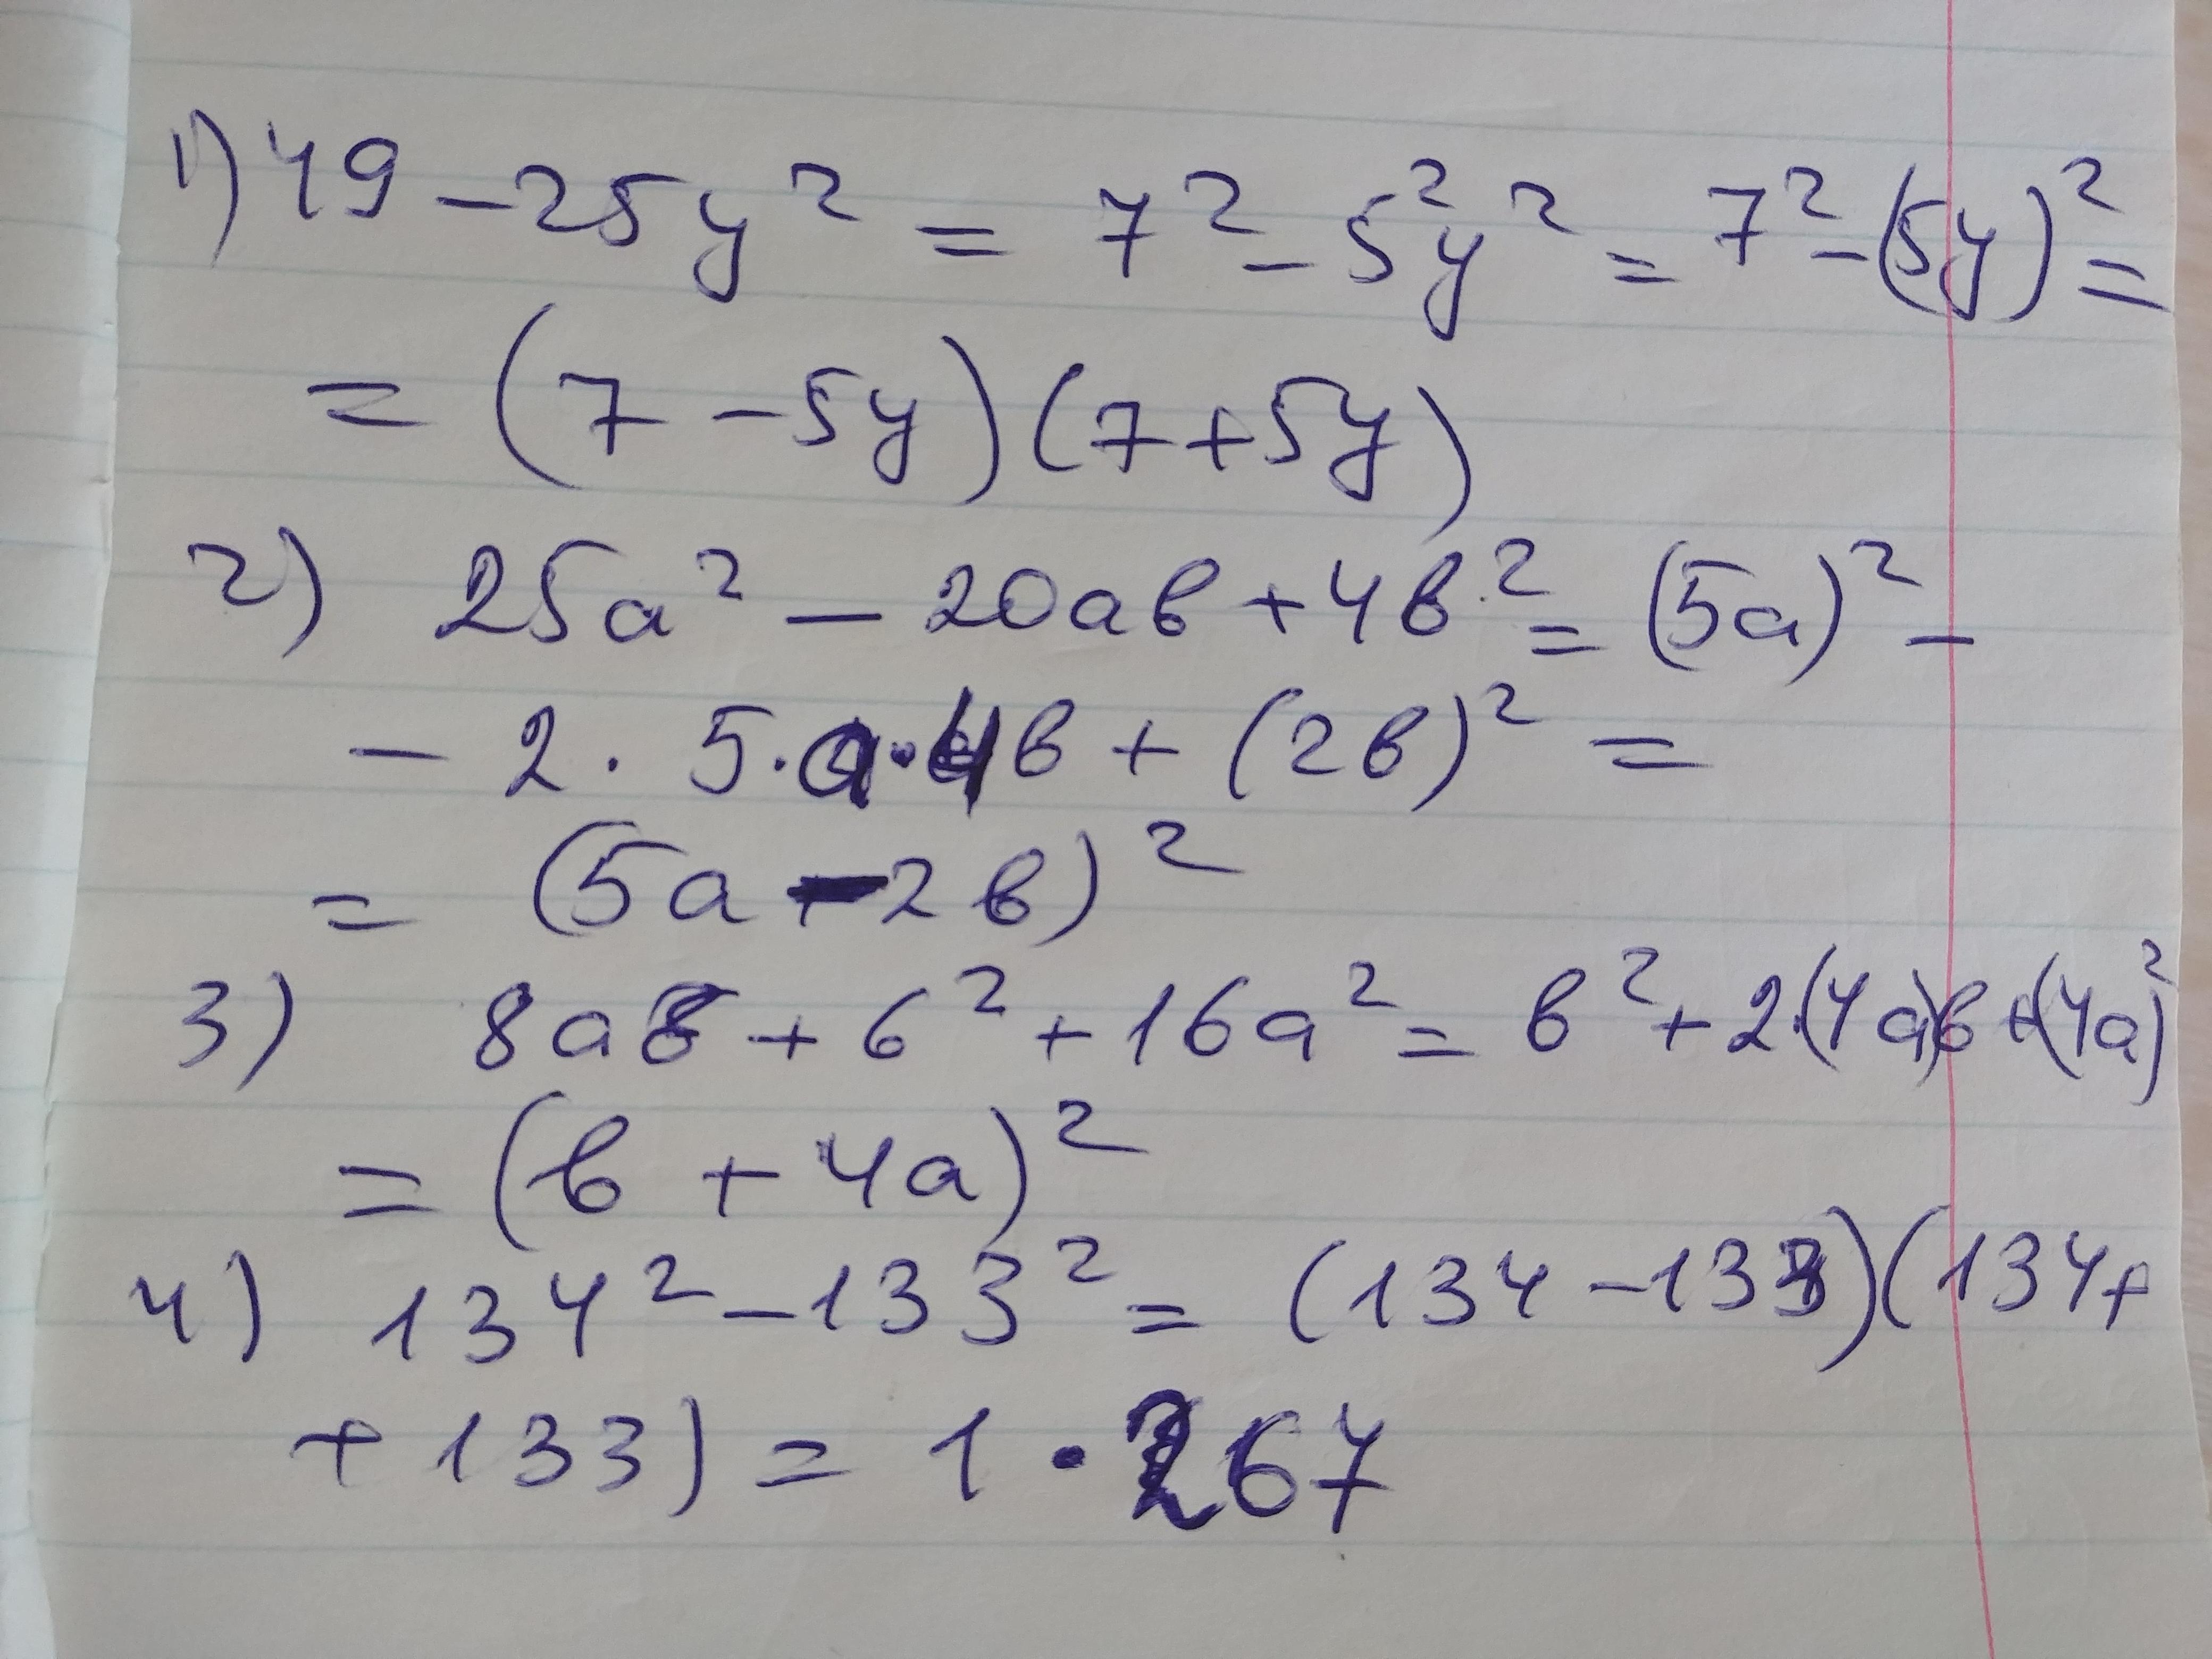 1) 49 - 25y² = 7² - 5²y² = 7² - (5y)² =
= (7 - 5y)(7 + 5y)
2) 25a² - 20ab + 4b² = (5a)² -
- 2 · 5 · a · 4b + (2b)² =
= (5a - 2b)²
3) 8ab + b² + 16a² = b² + 2·(4a)b + (4a)²
= (b + 4a)²
4) 134² - 133² = (134 - 133)(134 +
+ 133) = 1 · 267